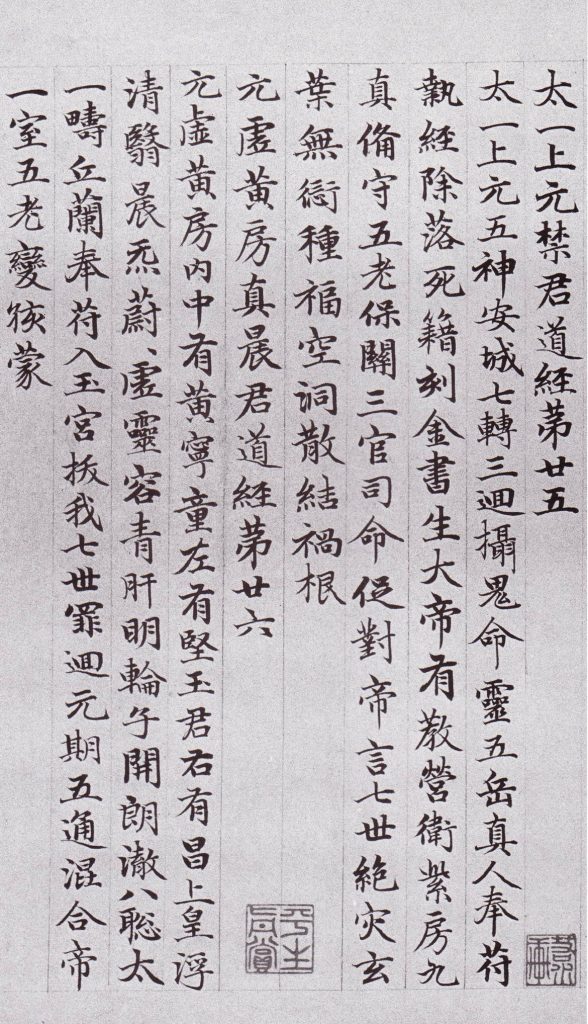 太一上元禁君道經第廿五
太一上元五神安城七轉三迴攝鬼命靈五岳真人奉苻
執經除落死籍刻金書生大帝有教營衛紫房九
真俻守五老保關三官司命促對帝言七世絶灾玄
葉無衍種福空洞散結禍根
元虛黄房真晨君道經第廿六
元虚黄房内中有黄寧童左有堅玉君右有昌上皇浮
清翳晨炁蔚、虛靈容青肝明輪午開朗澈八聡太
一疇丘蘭奉苻入玉宮拔我七世罪迴元期五通混合帝
一室五老變孩蒙
平生真賞